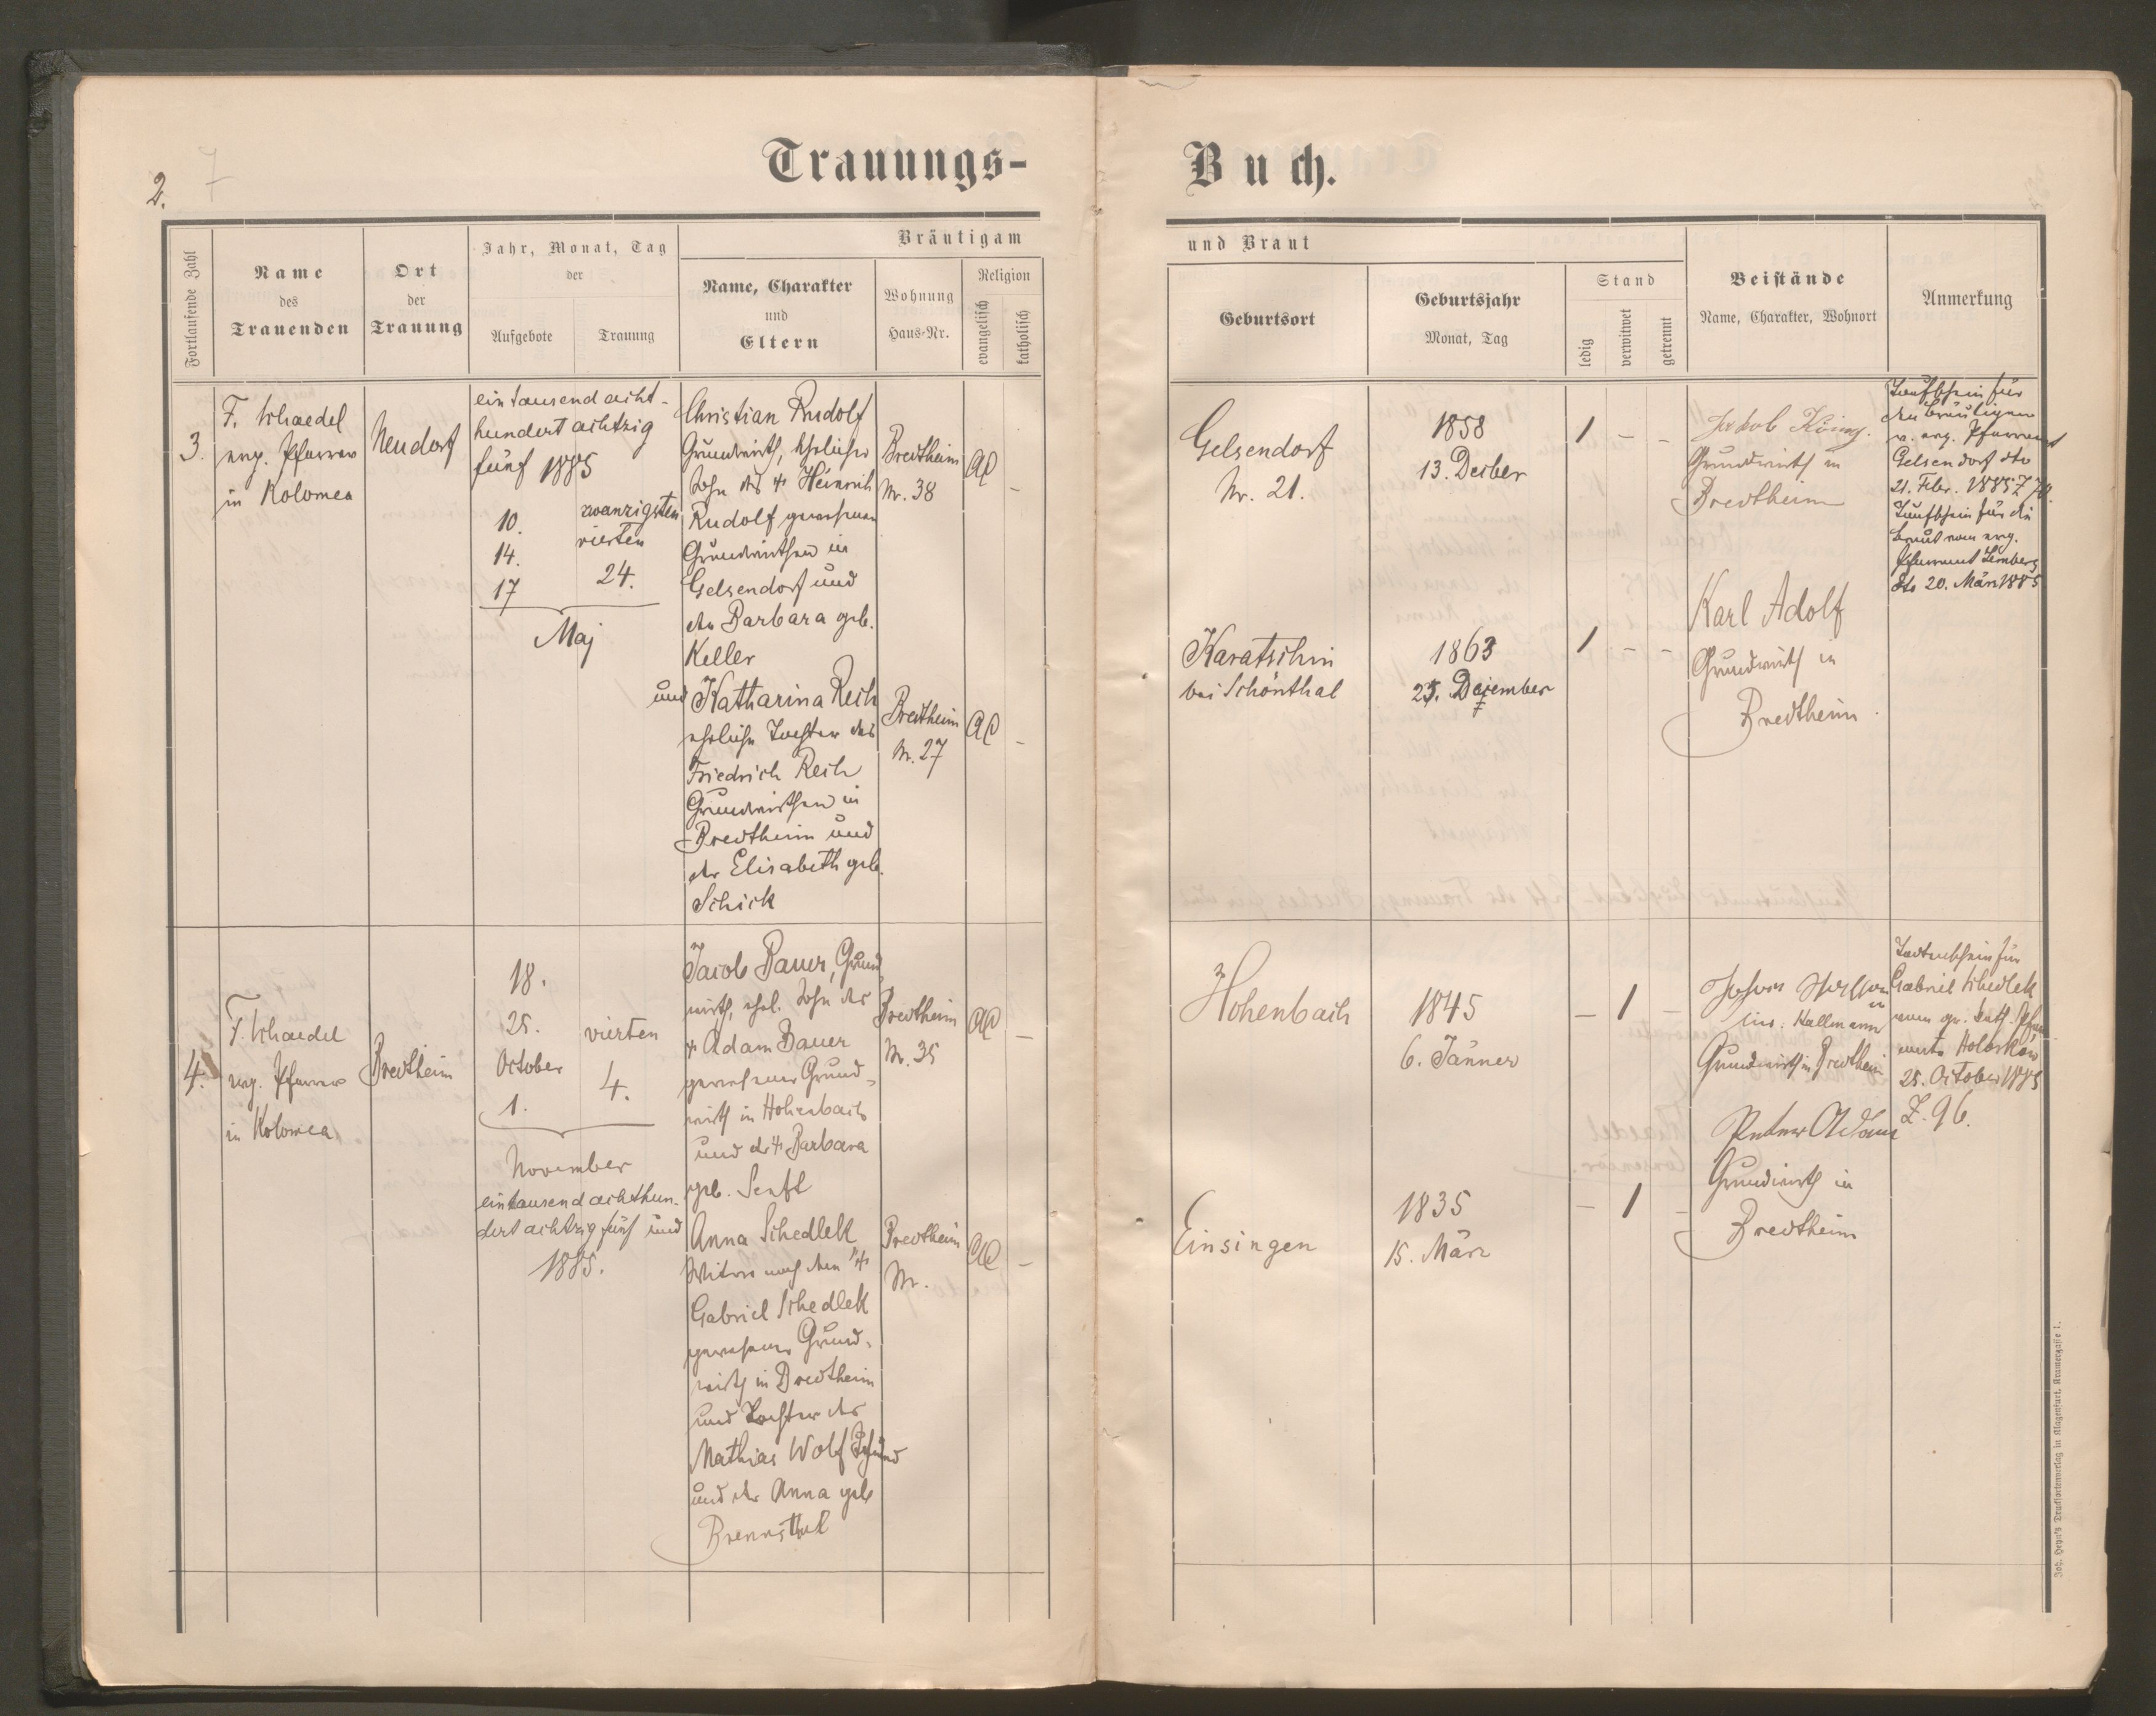 2.
7
Trauungs-
Buch.
Fortlaufende Zahl
Name
des
Trauenden
Ort
der
Trauung
Jahr, Monat, Tag
der
Aufgebote
Trauung
Bräutigam
Name, Charakter
und
Eltern
Wohnung
Haus-Nr.
Religion
evangelisch
katholisch
und Braut
Geburtsort
Geburtsjahr
Monat, Tag
Stand
ledig
verwitwet
getrennt
Beistände
Name, Charakter, Wohnort
Anmerkung
3.
F. Schaedel
evg. Pfarrer
in Kolomea
Neudorf
ein tausend acht-
hundert achtzig
fünf 1885
10.
14.
17
zwanzigsten
vierten
24.
Maj
Christian Rudolf
Grundwirth, ehelicher
Sohn des † Heinrich
Rudolf gewesenen
Grundwirthen in
Gelsendorf und
der Barbara geb.
Keller
Bredtheim
Nr. 38
AC
–
und Katharina Reich
eheliche Tochter des
Friedrich Reich
Grundwirthen in
Bredtheim und
der Elisabeth geb.
Schick
Bredtheim
Nr. 27
AC
–
Gelsendorf
Nr. 21.
1858
13. Decber
1 – –
Karatschin
bei Schönthal
1863
25. Dezember
1 – –
Jakob König.
Grundwirth in
Bredtheim
Karl Adolf
Grundwirth in
Bredtheim
Taufschein für
den Bräutigam
v. evg. Pfarramt
Gelsendorf dto
21. Febr. 1885 Z
Taufschein für die
Braut vom evg.
Pfarramt Lemberg
dto 20. März 1885
4.
F. Schaedel
evg. Pfarrer
in Kolomea
Bredtheim
18.
25.
October
1.
vierten
4.
November
eintausend achthun-
dert achtzig fünf und
1885.
Jacob Bauer, Grund
wirth, ehel. Sohn des
† Adam Bauer
gewesener Grund-
wirth in Hohenbach
und der † Barbara
geb. Senft
Bredtheim
Nr. 35
AC
–
Anna Schedlek
Witwe nach dem †
Gabriel Schedlek
gewesener Grund-
wirth in Bredtheim
und Tochter des
Mathias Wolf
und der Anna geb
Brennsthul
Bredtheim
Nr.
AC
–
Hohenbach
1845
6. Jänner
– 1 –
Einsingen
1835
15. März
– 1 –
Hallmann
Grundwirth in Bredtheim
Peter Adam
Grundwirth in
Bredtheim
Todtenschein für
Gabriel Schedlek
vom gr. kath. Pfarr
amte
25. October 1885
Z. 96.
Joh. Heyn's Drucksortenverlag in Klagenfurt, Kramergasse 1.